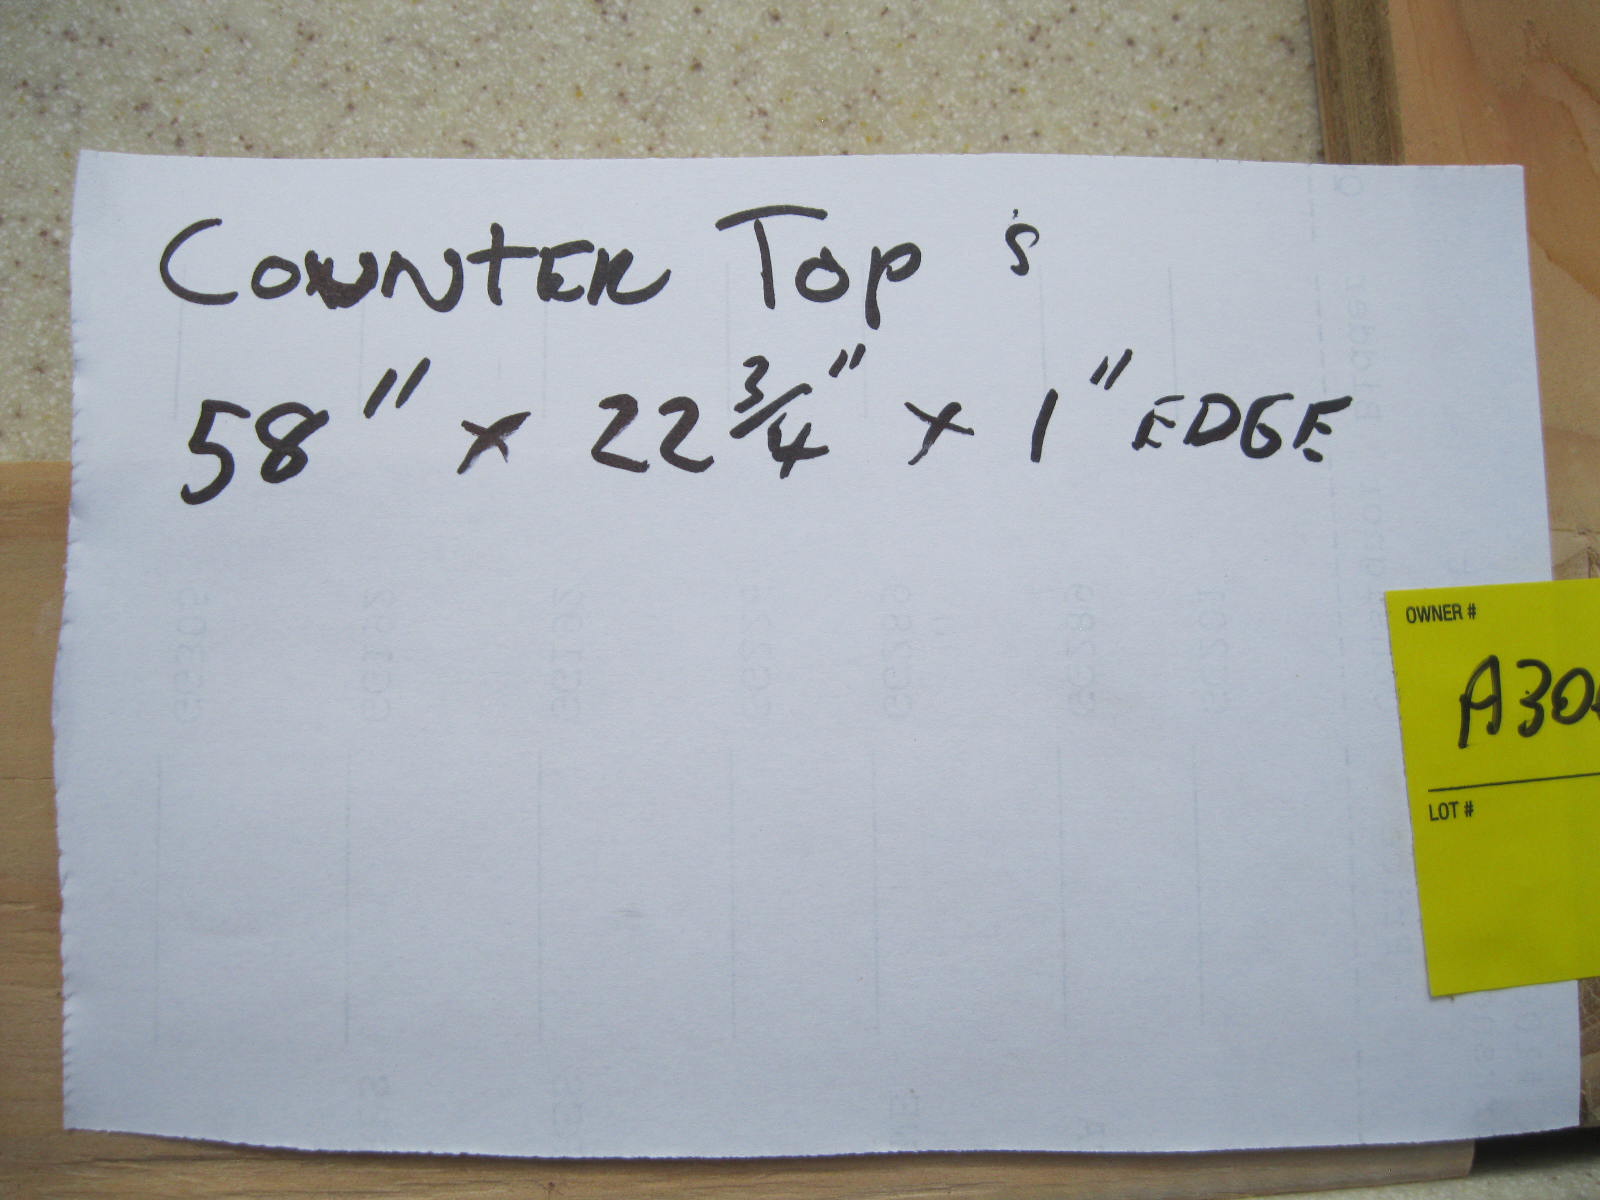 COUNTER TOP 's
58" x 22 3/4" x 1" EDGE
OWNER #
LOT #